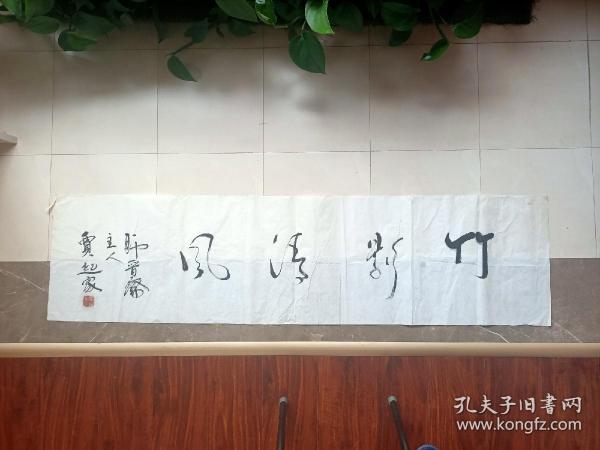 竹影清风
师晋斋
主人
贾起家
孔夫子旧书网
www.kongfz.com